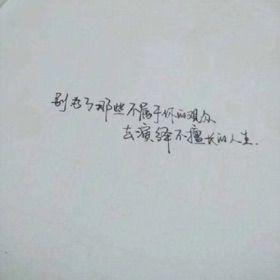 别为了那些不属于你的观众
去演绎不擅长的人生.